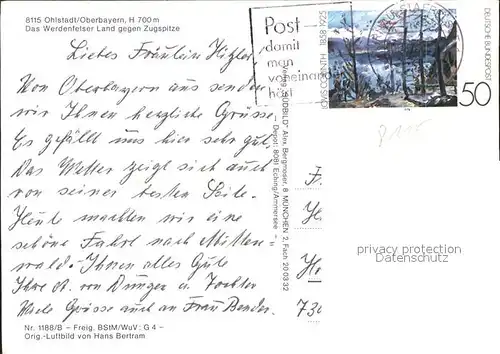 8115 Ohlstadt/Oberbayern, H 700 m
Das Werdenfelser Land gegen Zugspitze
Liebes Fräulein
Von Oberbayern aus senden
wir Ihnen herzliche Grüsse
Es gefällt uns hier sehr gut.
Das Wetter zeigt sich auch
von seiner besten Seite.
Heute machten wir eine
schöne Fahrt nach Mitten-
wald - Ihnen alles Gute
Ihre von Dungen u. Tochter
Viele Grüsse auch an Frau Bender.
Nr. 1188/B – Freig. BStM/WuV: G 4 –
Orig.-Luftbild von Hans Bertram
Verlag "SÜDBILD" Alex. Bergmoser, 8 MÜNCHEN 2, Fach 20 03 32
– Depot: 8081 Eching/Ammersee –
Post-
damit
man
voneinander
hört
LOVIS CORINTH 1858-1925
DEUTSCHE BUNDESPOST
50
8115
F
H
H
730
privacy protection
Datenschutz